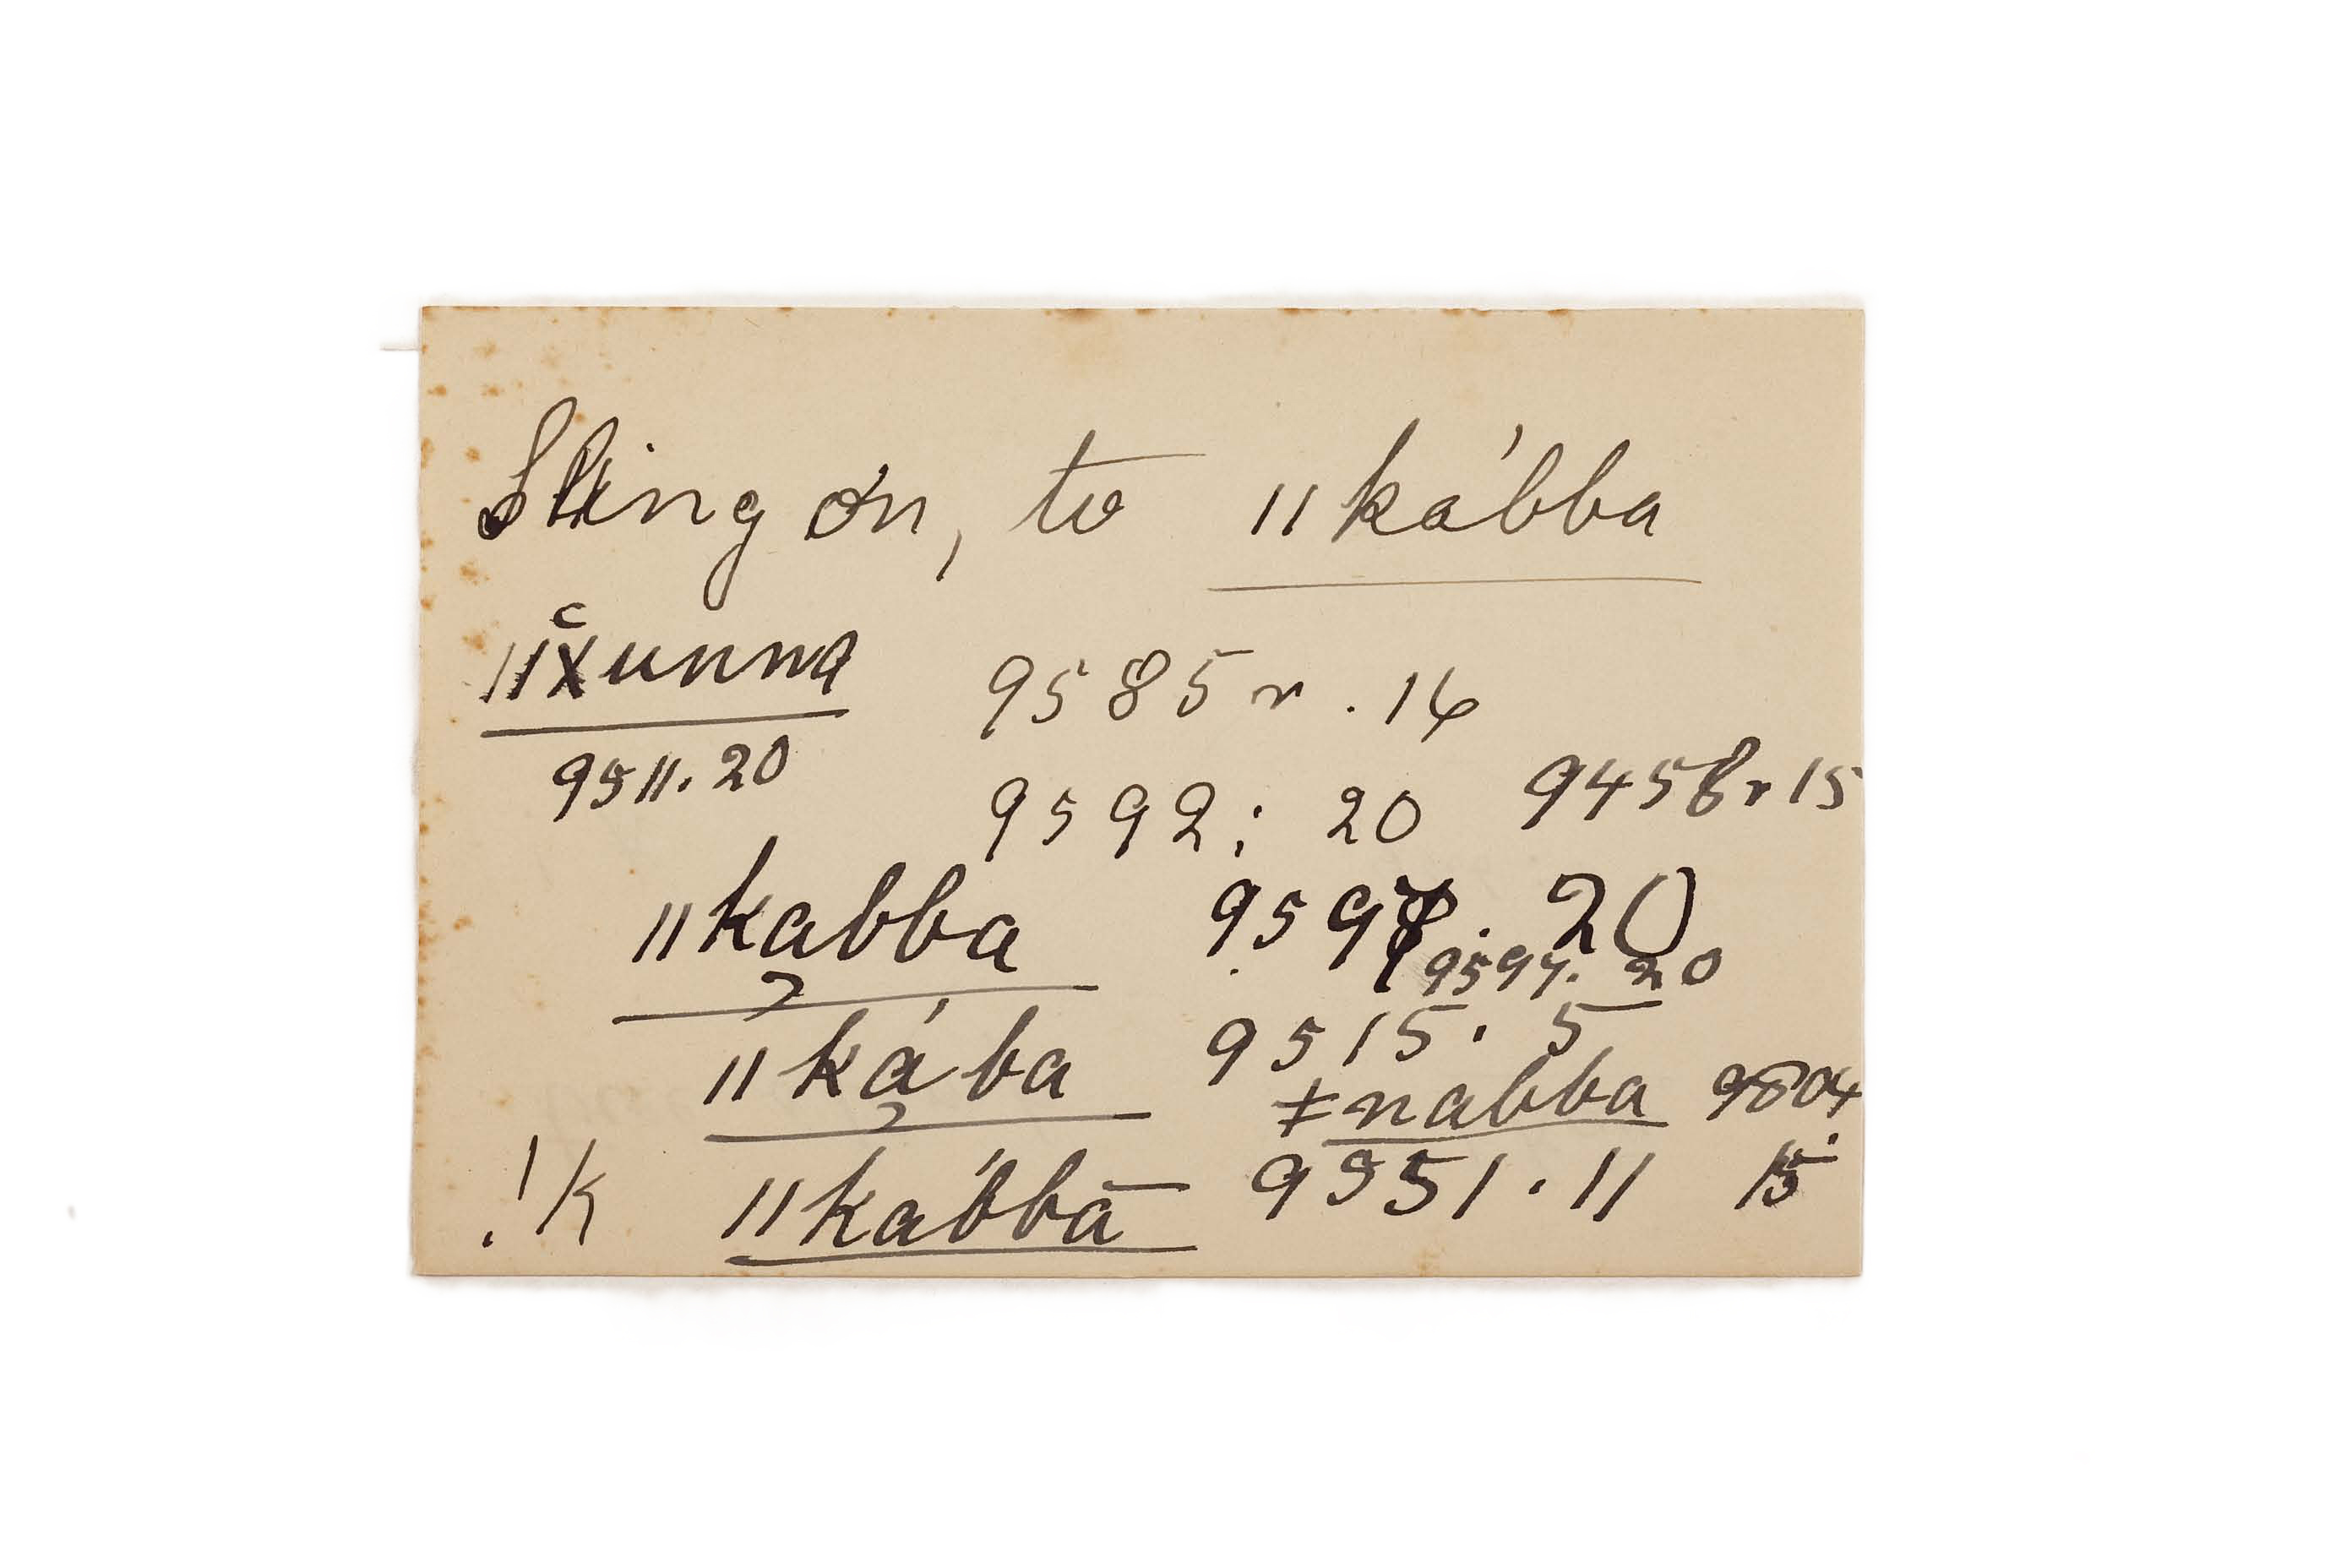 Sling on, to ǁkábba
ǁx̆unna 9585 r. 16
9511. 20 9592: 20 9458 r 15
ǁka̡bba 20
9597. 20
ǁká̡ba 9515. 5
ǂnabba 9804
!k ǁkábbā 9551. 11 15